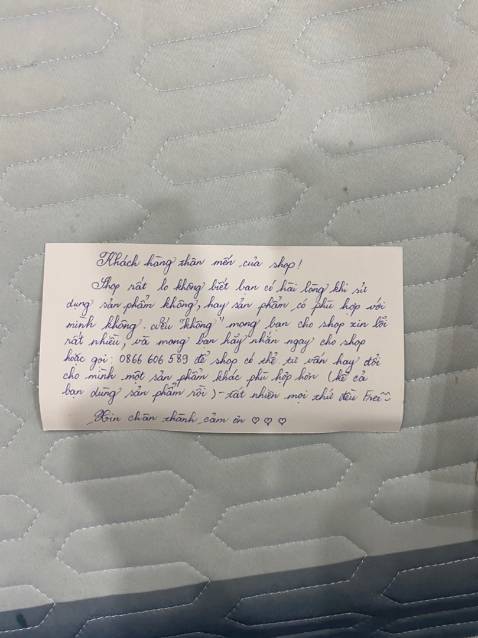 Khách hàng thân mến của shop!
Shop rất lo không biết bạn có hài lòng khi sử
dụng sản phẩm không, hay sản phẩm có phù hợp với
mình không. Nếu "không" mong bạn cho shop xin lỗi
rất nhiều, và mong bạn hãy nhắn ngay cho shop
hoặc gọi: 0866 606 589 để shop có thể tư vấn hay đổi
cho mình một sản phẩm khác phù hợp hơn (kể cả
bạn dùng sản phẩm rồi) - tất nhiên mọi thứ đều Free^^
Xin chân thành cảm ơn ♡ ♡ ♡